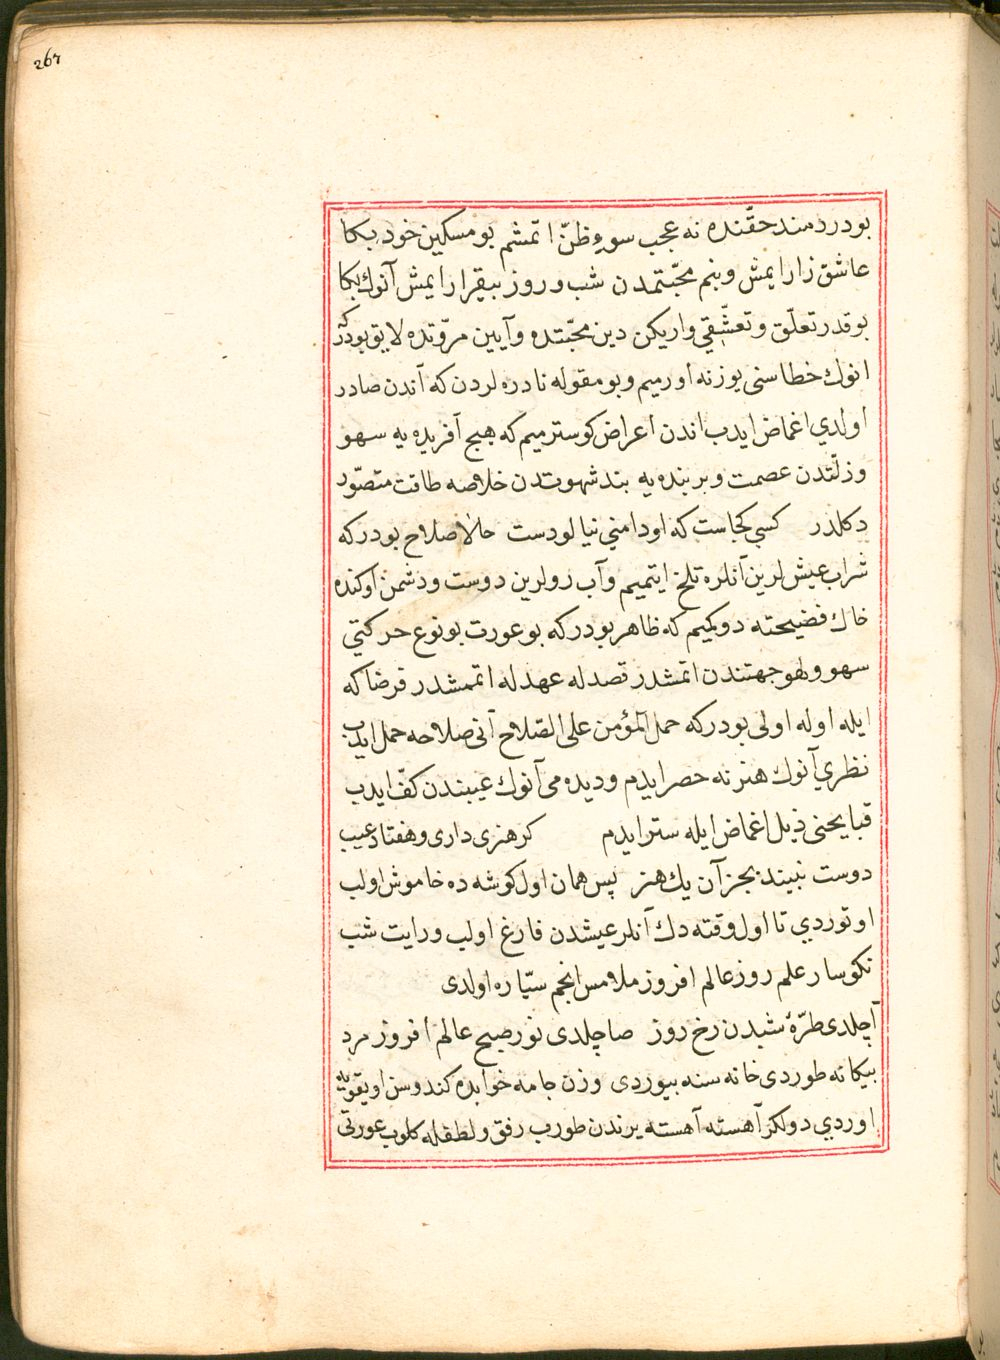 267
بو دردمند حقّنده نه عجب سوءِ ظنّ اتمشم بو مسكين خود بكا
عاشق زار ايمش وبنم محبّتمدن شب و روز بيقرار ايمش آنوك بكا
بو قدر تعلّق و تعشّقي واريكن دين محبّتده و آيين مروّتده لايق بودكلدر
انوك خطاسنى يوزنه اورميم وبو مقوله نادره لردن كه آندن صادر
اولدي اغماض ايدب اندن اعراض كوسترميم كه هيچ آفريده يه سهو
وزلّتدن عصمت وبر بنده يه بند شهوتدن خلاصه طاقت متصوّر
دكلدر كسي كجاست كه او دامني نيالودست حالا صلاح بودركه
شراب عيشلرين آنلره تلخ ايتميم وآب رولرين دوست ودشمن اوكنده
خاك فضيحته دوكميم كه ظاهر بودركه بو عورت بو نوع حركتي
سهو ولهو جهتندن اتمشدر قصدله عهدله اتممشدر فرضا كه
ايله اوله اولى بودركه حمل المؤمن على الصّلاح آنى صلاحه حمل ايدب
نظري آنوك هنرنه حصر ايدم وديده مى آنوك عيبندن كفّ ايدب
قبايحنى ذيل اغماض ايله ستر ايدم كر هنرى دارى و هفتاد عيب
دوست نبيند بجز آن يك هنر پس همان اول كوشه ده خاموش اولب
اوتوردي تا اول وقته دك آنلر عيشدن فارغ اولب ورايت شب
نكوسار علم روز عالم افروز ملامس انجم سيّاره اولدى
آچلدى طرّهٔ شبدن رخ روز صاچلدى نور صبح عالم افروز مرد
بيكانه طوردى خانه سنه بيوردى وزن جامه خوابده كندوسن اويقويه
اوردي دولكر آهسته آهسته يرندن طورب رفق ولطفله كلوب عورتى